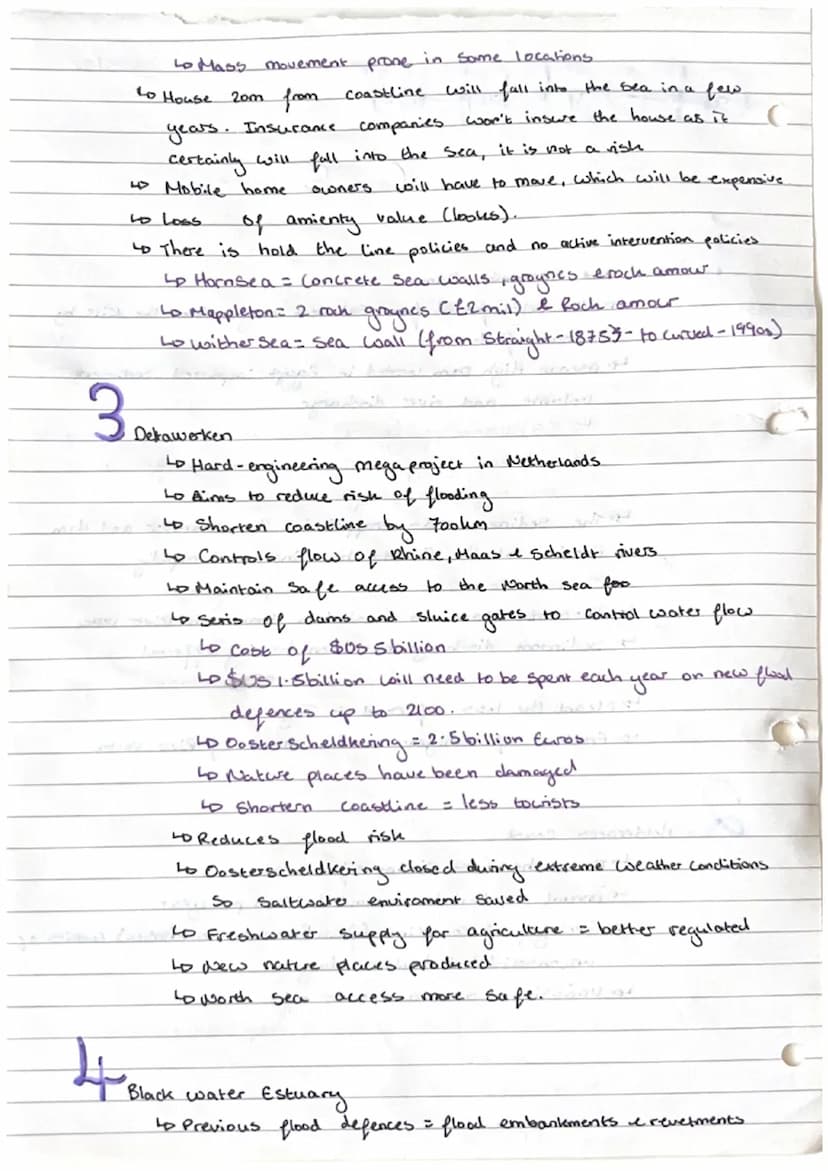 ↳ Mass movement prone in some locations
↳ House 20m from coastline will fall into the sea in a few
years. Insurance companies won't insure the house as it
certainly will fall into the sea, it is not a risk
↳ Mobile home owners will have to move, which will be expensive
↳ Loss of amienty value (looks).
↳ There is hold the line policies and no active intervention policies
↳ Hornsea = concrete sea walls, groynes & rock amour
↳ Mappleton = 2 rock groynes (£2mil) & Rock amour
↳ Withersea = sea wall (from straight - 1875 - to curved - 1990s)
3
Detawerken
↳ Hard-engineering mega project in Netherlands
↳ Aims to reduce risk of flooding
↳ Shorten coastline by 700km
↳ Controls flow of Rhine, Maas & Scheldt rivers
↳ Maintain safe access to the North sea foo
↳ Seris of dams and sluice gates to control water flow
↳ Cost of $US 5 billion
↳ $US 1.5billion will need to be spent each year on new flood
defences up to 2100.
↳ Oosterscheldkering = 2.5 billion Euros
↳ Nature places have been damaged
↳ Shortern coastline = less tourists
↳ Reduces flood risk
↳ Oosterscheldkering closed during extreme weather conditions
so saltwater enviroment saved
↳ Freshwater supply for agriculture = better regulated
↳ New nature places produced
↳ North sea access more safe.
4
Black water Estuary
↳ Previous flood defences = flood embankments & revetments